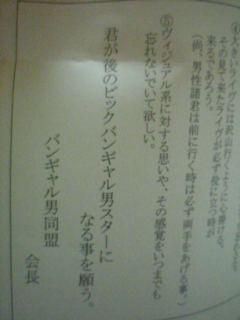 ④大きいライヴには沢山行くように心掛ける、
その見て来たライヴが必ず役に立つ時が
来るであろう。
(尚、男性諸君は前に行く時は必ず両手をあげる事。)
⑤ヴィジュアル系に対する思いや、その感覚をいつまでも
忘れないでいて欲しい。
君が後のビックバンギャル男スターに
なる事を願う。
バンギャル男同盟
会長